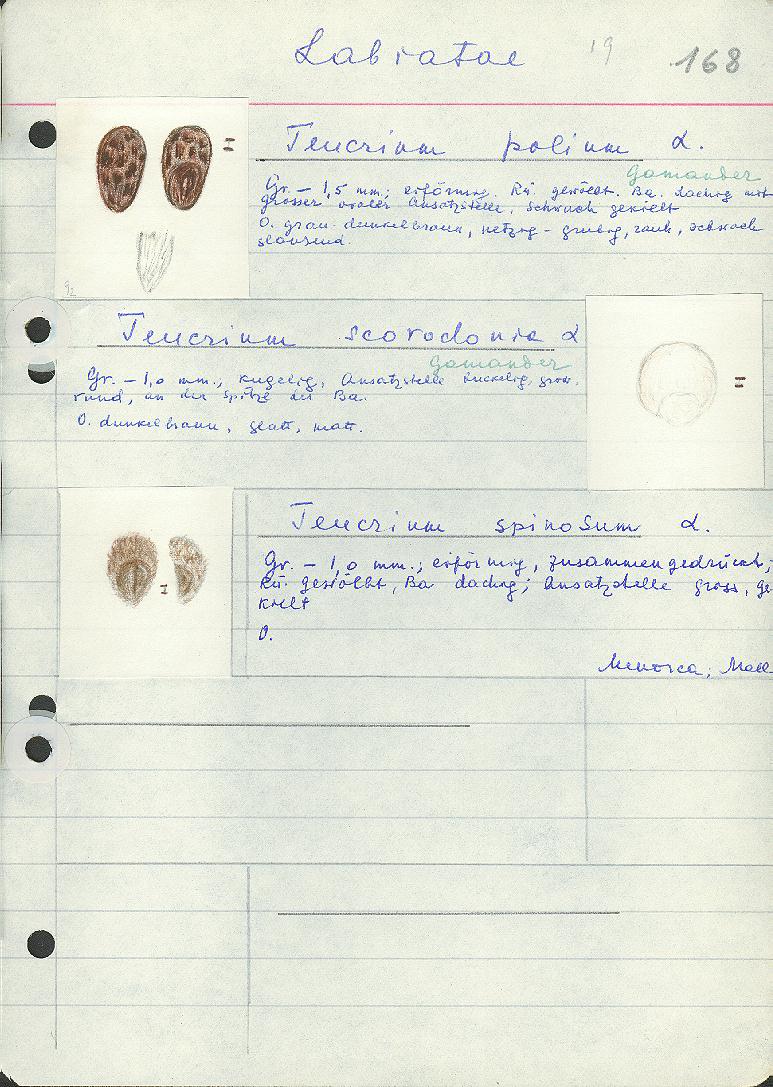 Labiatae 19 168
Teucrium polium L.
Gamander
Gr. – 1,5 mm.; eiförmig. Rü. gewölbt. Ba. dachig mit
grosser ovaler Ansatzstelle, schwach gekielt
O. grau-dunkelbraun, netzig-grubig, rauh, schwach
glänzend.
92
Teucrium scorodonia L
Gamander
Gr. – 1,0 mm.; kugelig, Ansatzstelle buckelig, gross,
rund, an der Spitze der Ba.
O. dunkelbraun, glatt, matt.
Teucrium spinosum L.
Gr. – 1,0 mm.; eiförmig, zusammengedrückt;
Rü. gewölbt, Ba dachig; Ansatzstelle gross, ge
kielt
O.
Menorca;